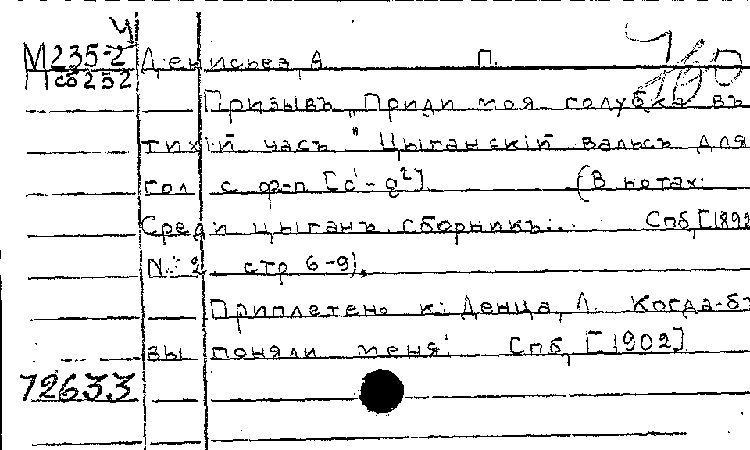 Ч
М235-2 Денисьев, А П.
П сб 252
Призывъ „Приди моя голубка въ
тихій часъ" Цыганскій вальсъ для
гол с ф-п [c¹-g²] (В нотах:
Среди цыганъ сборникъ... Спб, [1892
№ 2 стр 6-9).
Приплетено к: Денца, Л. Когда-бъ
вы поняли меня! Спб, [1902]
72633